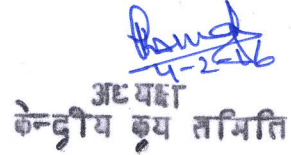 4-2-16
अध्यक्ष
केन्द्रीय क्रय समिति